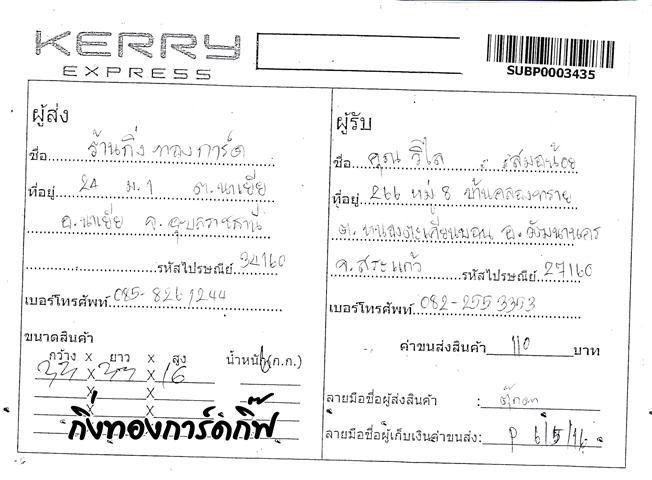 KERRY
EXPRESS
SUBP0003435
ผู้ส่ง
ชื่อ ร้านกิ่งทองการ์ด
ที่อยู่ 24 ม.1 ต.นาเยีย
อ.นาเยีย จ.อุบลราชธานี
รหัสไปรษณีย์ 34160
เบอร์โทรศัพท์ 085-826 1244
ขนาดสินค้า
กว้าง x ยาว x สูง น้ำหนัก(ก.ก.)
33 x 33 x 16
x x
x x
กิ่งทองการ์ดกิ๊ฟ
ผู้รับ
ชื่อ คุณ วิไล สมอน้อย
ที่อยู่ 266 หมู่ 8 บ้านคลองทราย
ต. หนองตะเคียนบอน อ. วัฒนานคร
จ.สระแก้ว รหัสไปรษณีย์ 27160
เบอร์โทรศัพท์ 082-255 3353
ค่าขนส่งสินค้า 110 บาท
ลายมือชื่อผู้ส่งสินค้า :
ลายมือชื่อผู้เก็บเงินค่าขนส่ง: 6/5/16